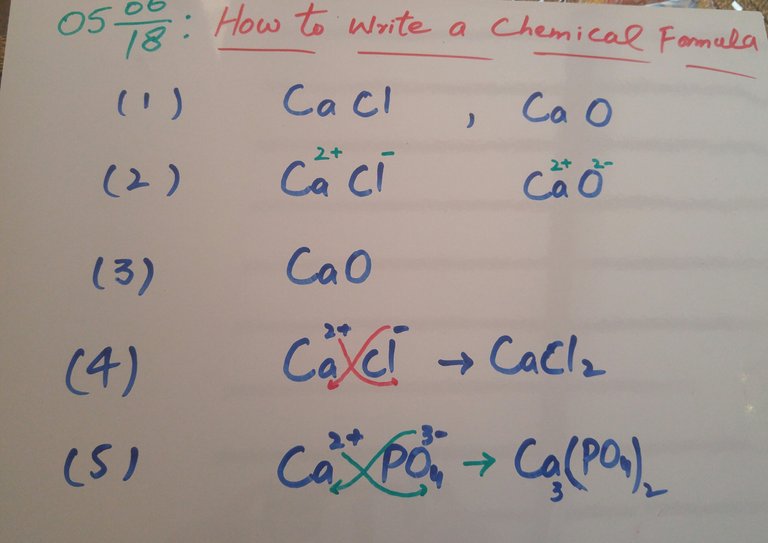 05 06/18 : How to write a Chemical Formula
(1) Ca Cl , Ca O
(2) Ca²⁺ Cl⁻ Ca²⁺ O²⁻
(3) CaO
(4) Ca²⁺ Cl⁻ → CaCl₂
(5) Ca²⁺ PO₄³⁻ → Ca₃(PO₄)₂